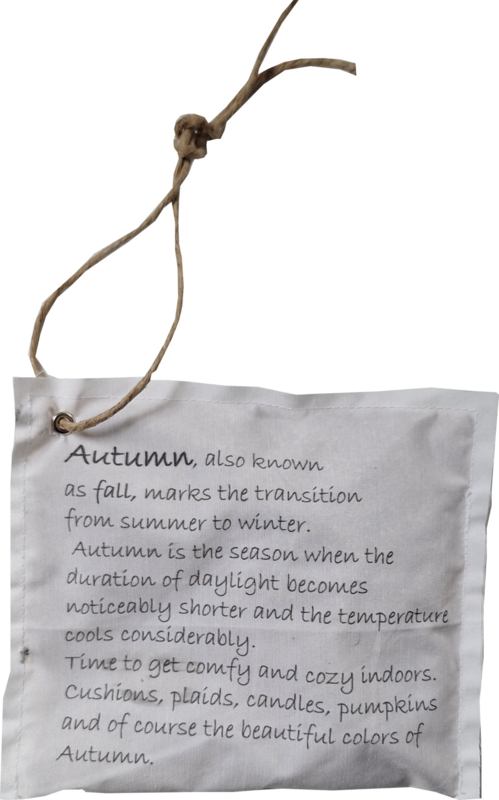 Autumn, also known
as fall, marks the transition
from summer to winter.
Autumn is the season when the
duration of daylight becomes
noticeably shorter and the temperature
cools considerably.
Time to get comfy and cozy indoors.
Cushions, plaids, candles, pumpkins
and of course the beautiful colors of
Autumn.